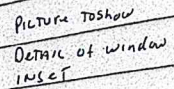 PICTURE TO SHOW
DETAIL OF WINDOW
INSET